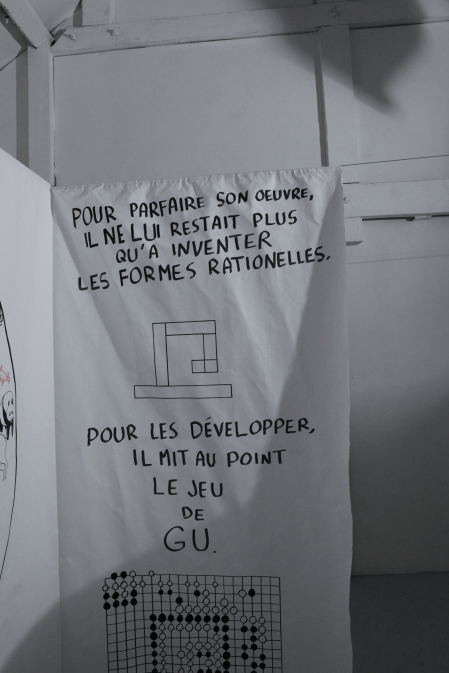 POUR PARFAIRE SON OEUVRE,
IL NE LUI RESTAIT PLUS
QU'A INVENTER
LES FORMES RATIONELLES.
POUR LES DÉVELOPPER,
IL MIT AU POINT
LE JEU
DE
GU.